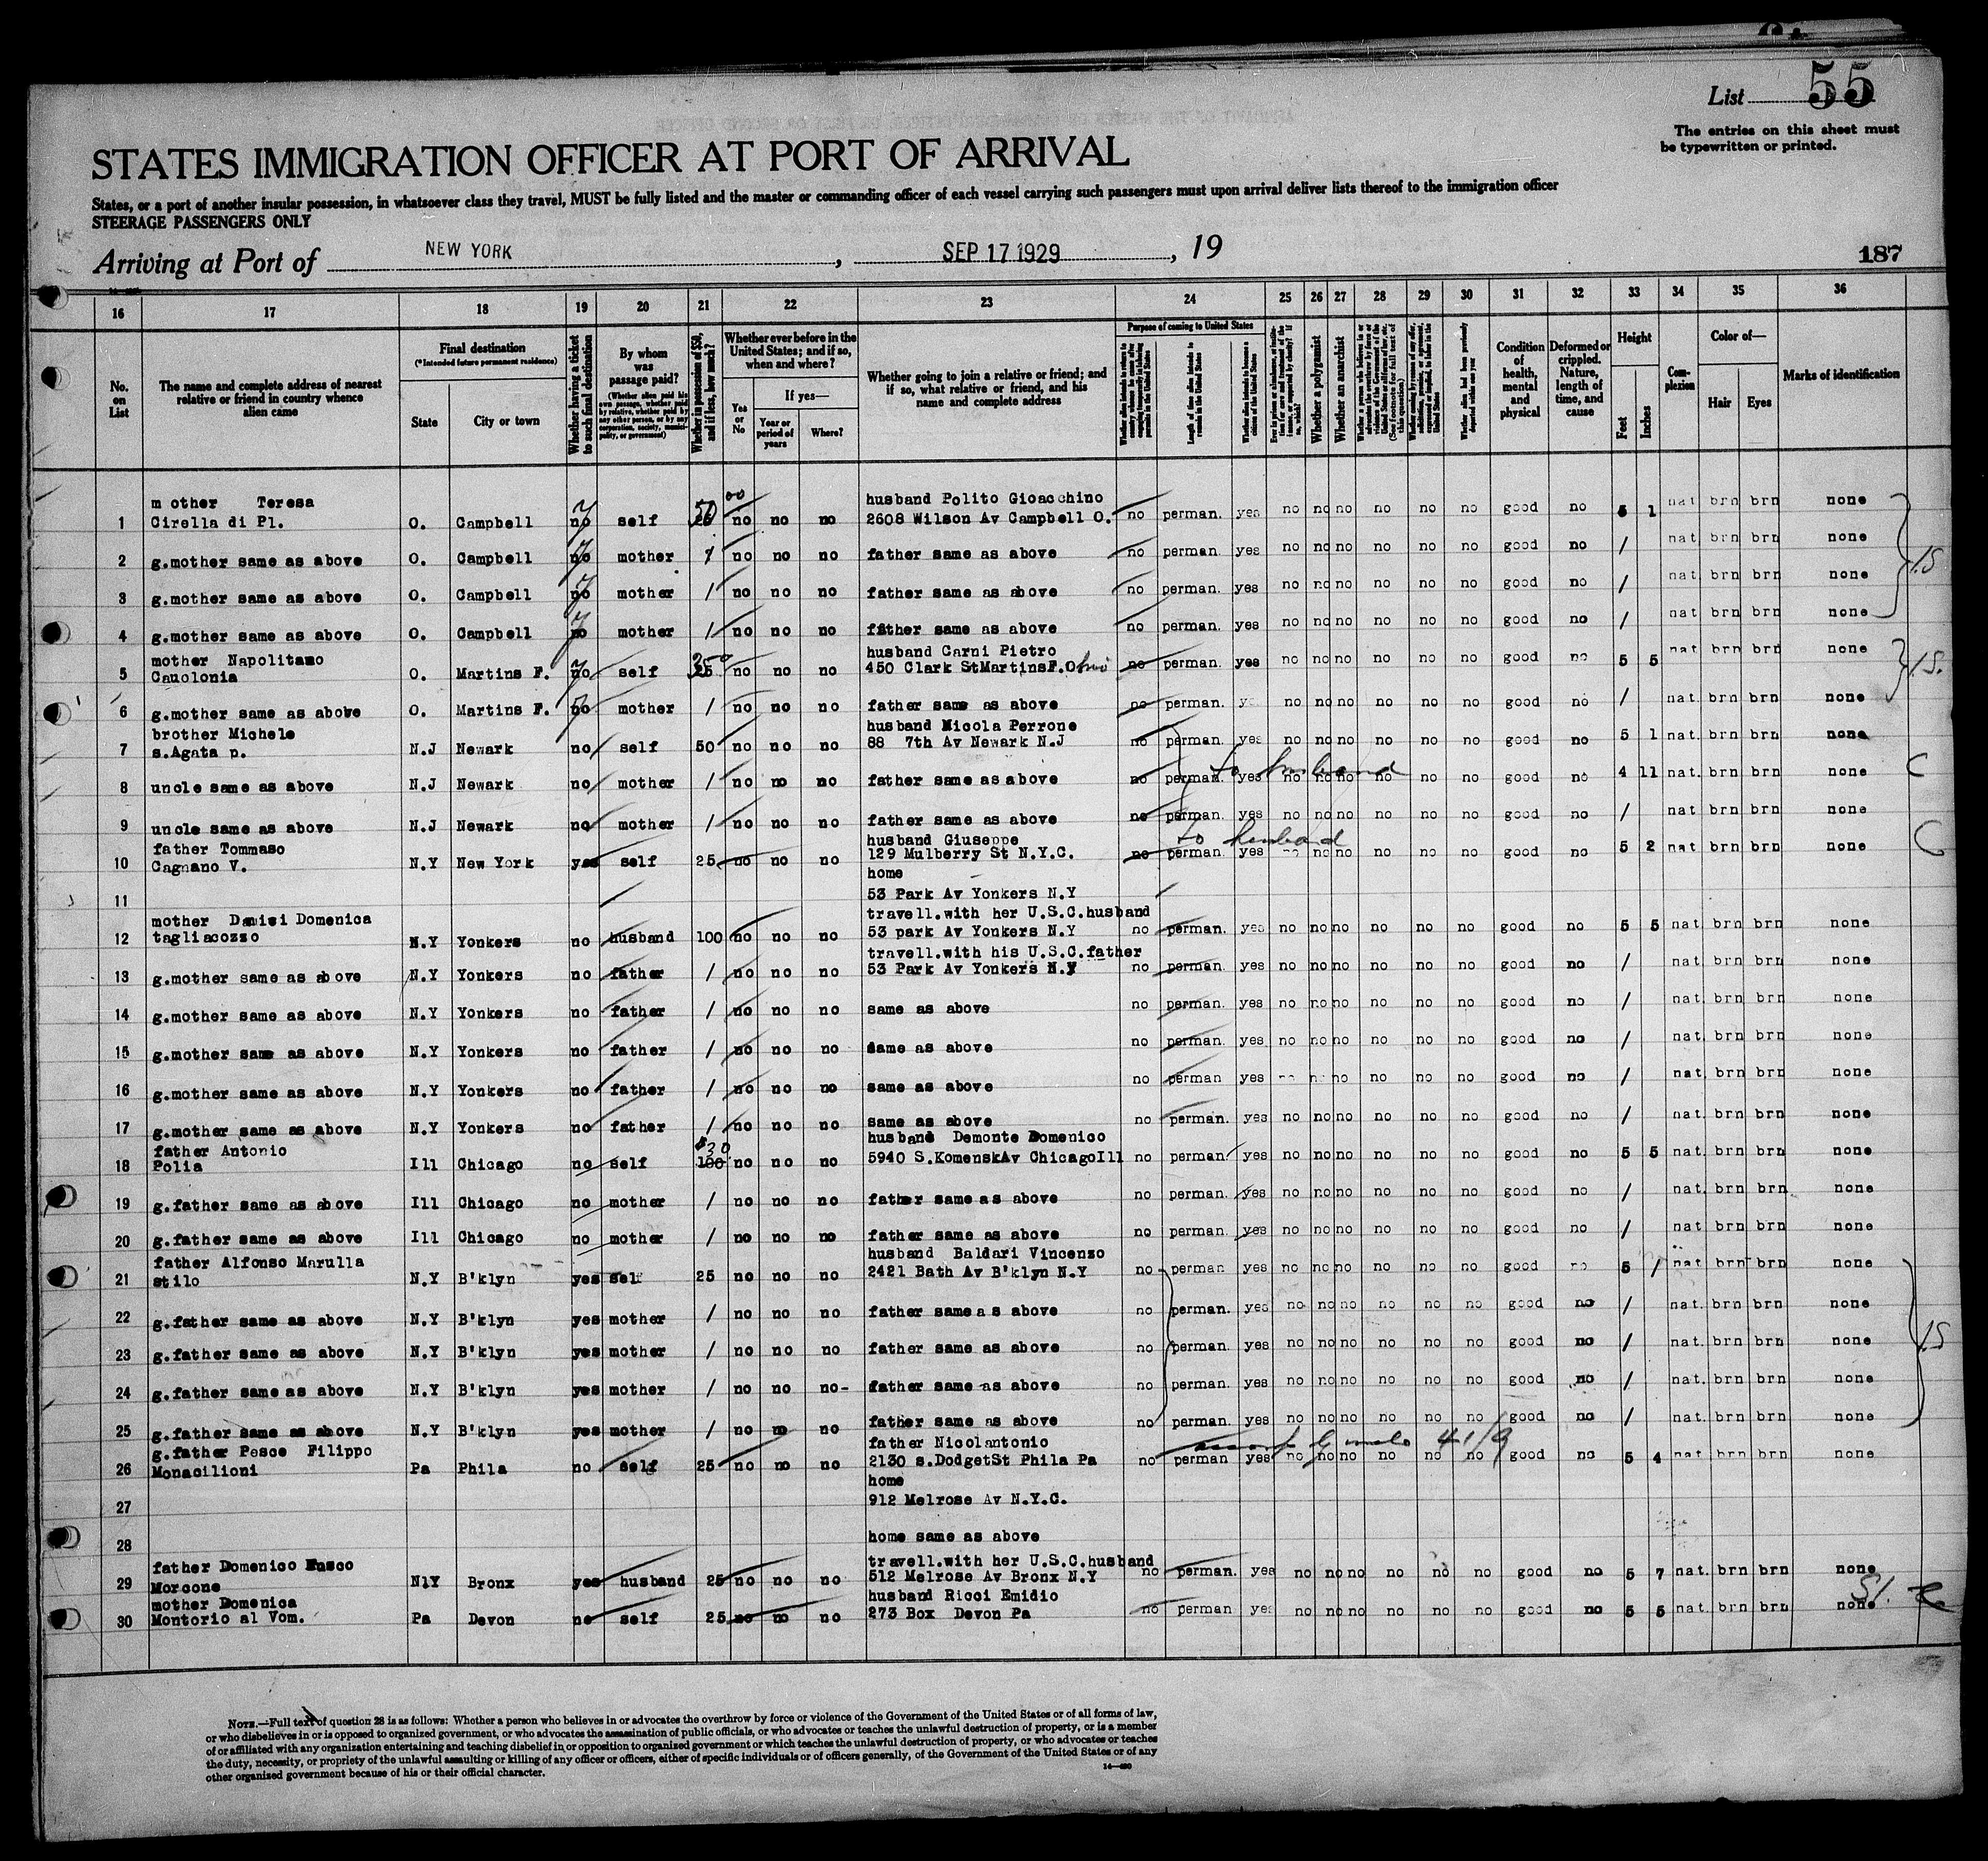 List 55
The entries on this sheet must
be typewritten or printed.
STATES IMMIGRATION OFFICER AT PORT OF ARRIVAL
States, or a port of another insular possession, in whatsoever class they travel, MUST be fully listed and the master or commanding officer of each vessel carrying such passengers must upon arrival deliver lists thereof to the immigration officer
STEERAGE PASSENGERS ONLY
Arriving at Port of NEW YORK, SEP 17 1929, 19
187
16 17 18 19 20 21 22 23 24 25 26 27 28 29 30 31 32 33 34 35 36
No. on List
The name and complete address of nearest relative or friend in country whence alien came
Final destination
(*Intended future permanent residence)
State
City or town
Whether having a ticket to such final destination
By whom was passage paid?
(Whether alien paid his own passage, whether paid by relative, whether paid by any other person, or by any corporation, society, municipality, or government)
Whether in possession of $50, and if less, how much?
Whether ever before in the United States; and if so, when and where?
Yes or No
If yes—
Year or period of years
Where?
Whether going to join a relative or friend; and if so, what relative or friend, and his name and complete address
Purpose of coming to United States
Length of time alien intends to remain in the United States
Whether alien intends to become a citizen of the United States
Whether a polygamist
Whether an anarchist
Whether alien had been previously deported within one year
Condition of health, mental and physical
Deformed or crippled. Nature, length of time, and cause
Height
Feet
Inches
Complexion
Color of—
Hair
Eyes
Marks of identification
mother Teresa husband Polito Gioacchino
1 Cirella di Pl. O. Campbell no self 50 no no no 2608 Wilson Av Campbell O. no perman. yes no no no no no no good no 5 1 nat brn brn none
2 g.mother same as above O. Campbell no mother / no no no father same as above no perman. yes no no no no no no good no / nat brn brn none
3 g.mother same as above O. Campbell no mother / no no no father same as above no perman. yes no no no no no no good no / nat. brn brn none
4 g.mother same as above O. Campbell no mother / no no no father same as above no perman. yes no no no no no no good no / nat brn brn none
mother Napolitano husband Carni Pietro
5 Cauolonia O. Martins F. no self 25 no no no 450 Clark StMartinsF.O no perman. yes no no no no no no good no 5 5 nat brn brn none
6 g.mother same as above O. Martins F. no mother / no no no father same as above no perman. no no no no no no good no / nat. brn brn none
brother Michele husband Nicola Perrone
7 s.Agata p. N.J Newark no self 50 no no no 88 7th Av Newark N.J no perman. yes no no no no no no good no 5 1 nat. brn brn none
to husband
8 uncle same as above N.J Newark no mother / no no no father same as above no perman. yes no no no no no no good no 4 11 nat. brn brn none
9 uncle same as above N.J Newark no mother / no no no father same as above no perman. yes no no no no no no good no / nat. brn brn none
father Tommaso husband Giuseppe to husband
10 Cagnano V. N.Y New York yes self 25 no no no 129 Mulberry St N.Y.C. no perman. yes no no no no no no good no 5 2 nat brn brn none
home
11 53 Park Av Yonkers N.Y
mother Damisi Domenica travell.with her U.S.C.husband
12 tagliacozzo N.Y Yonkers no husband 100 no no no 53 park Av Yonkers N.Y no perman. yes no no no no no no good no 5 5 nat. brn brn none
travell.with his U.S.C.father
13 g.mother same as above N.Y Yonkers no father / no no no 53 Park Av Yonkers N.Y no perman. yes no no no no no no good no / nat. brn brn none
14 g.mother same as above N.Y Yonkers no father / no no no same as above no perman. yes no no no no no no good no / nat. brn brn none
15 g.mother same as above N.Y Yonkers no father / no no no same as above no perman. yes no no no no no no good no / nat. brn brn none
16 g.mother same as above N.Y Yonkers no father / no no no same as above no perman yes no no no no no good no / nat. brn brn none
17 g.mother same as above N.Y Yonkers no father / no no no same as above no perman. yes no no no no no no good no / nat. brn brn none
father Antonio $30 husband Demonte Domenico
18 Polia Ill Chicago no self 100 no no no 5940 S.KomenskAv ChicagoIll no perman yes no no no no no no good no 5 5 nat. brn brn none
19 g.father same as above Ill Chicago no mother / no no no father same as above no perman. yes no no no no no no good no / nat. brn brn none
20 g.father same as above Ill Chicago no mother / no no no father same as above no perman. yes no no no no no no good no / nat brn brn none
father Alfonso Marulla husband Baldari Vincenzo
21 stilo N.Y B'klyn yes self 25 no no no 2421 Bath Av B'klyn N.Y no perman yes no no no no no no good no 5 / nat brn brn none
22 g.father same as above N.Y B'klyn yes mother / no no no father same as above no perman. yes no no no no no no good no / nat. brn brn none
23 g.father same as above N.Y B'klyn yes mother / no no no father same as above no perman. yes no no no no no no good no / nat. brn brn none
24 g.father same as above N.Y B'klyn yes mother / no no no- father same as above no perman. yes no no no no no no good no / nat. brn brn none
25 g.father same as above N.Y B'klyn yes mother / no no no father same as above no perman. yes no no no no no no good no / nat. brn brn none
g.father Pesce Filippo father Nicolantonio
26 Monacilioni Pa Phila no self 25 no no no 2130 s.DodgetSt Phila Pa no perman yes no no no no no no good no 5 4 nat brn brn none
home
27 912 Melrose Av N.Y.C.
28 home same as above
father Domenico Fusco travell.with her U.S.C.husband
29 Morcone N1Y Bronx yes husband 25 no no no 512 Melrose Av Bronx N.Y no perman. yes no no no no no no good no 5 7 nat. brn brn none
mother Domenica husband Ricci Emidio
30 Montorio al Vom. Pa Devon no self 25 no no no 273 Box Devon Pa no perman yes no no no no no no good no 5 5 nat. brn brn none
NOTE.—Full text of question 28 is as follows: Whether a person who believes in or advocates the overthrow by force or violence of the Government of the United States or of all forms of law,
or who disbelieves in or is opposed to organized government, or who advocates the assassination of public officials, or who advocates or teaches the unlawful destruction of property, or is a member
of or affiliated with any organization entertaining and teaching disbelief in or opposition to organized government or which teaches the unlawful destruction of property, or who advocates or teaches
the duty, necessity, or propriety of the unlawful assaulting or killing of any officer or officers, either of specific individuals or of officers generally, of the Government of the United States or of any
other organized government because of his or their official character.